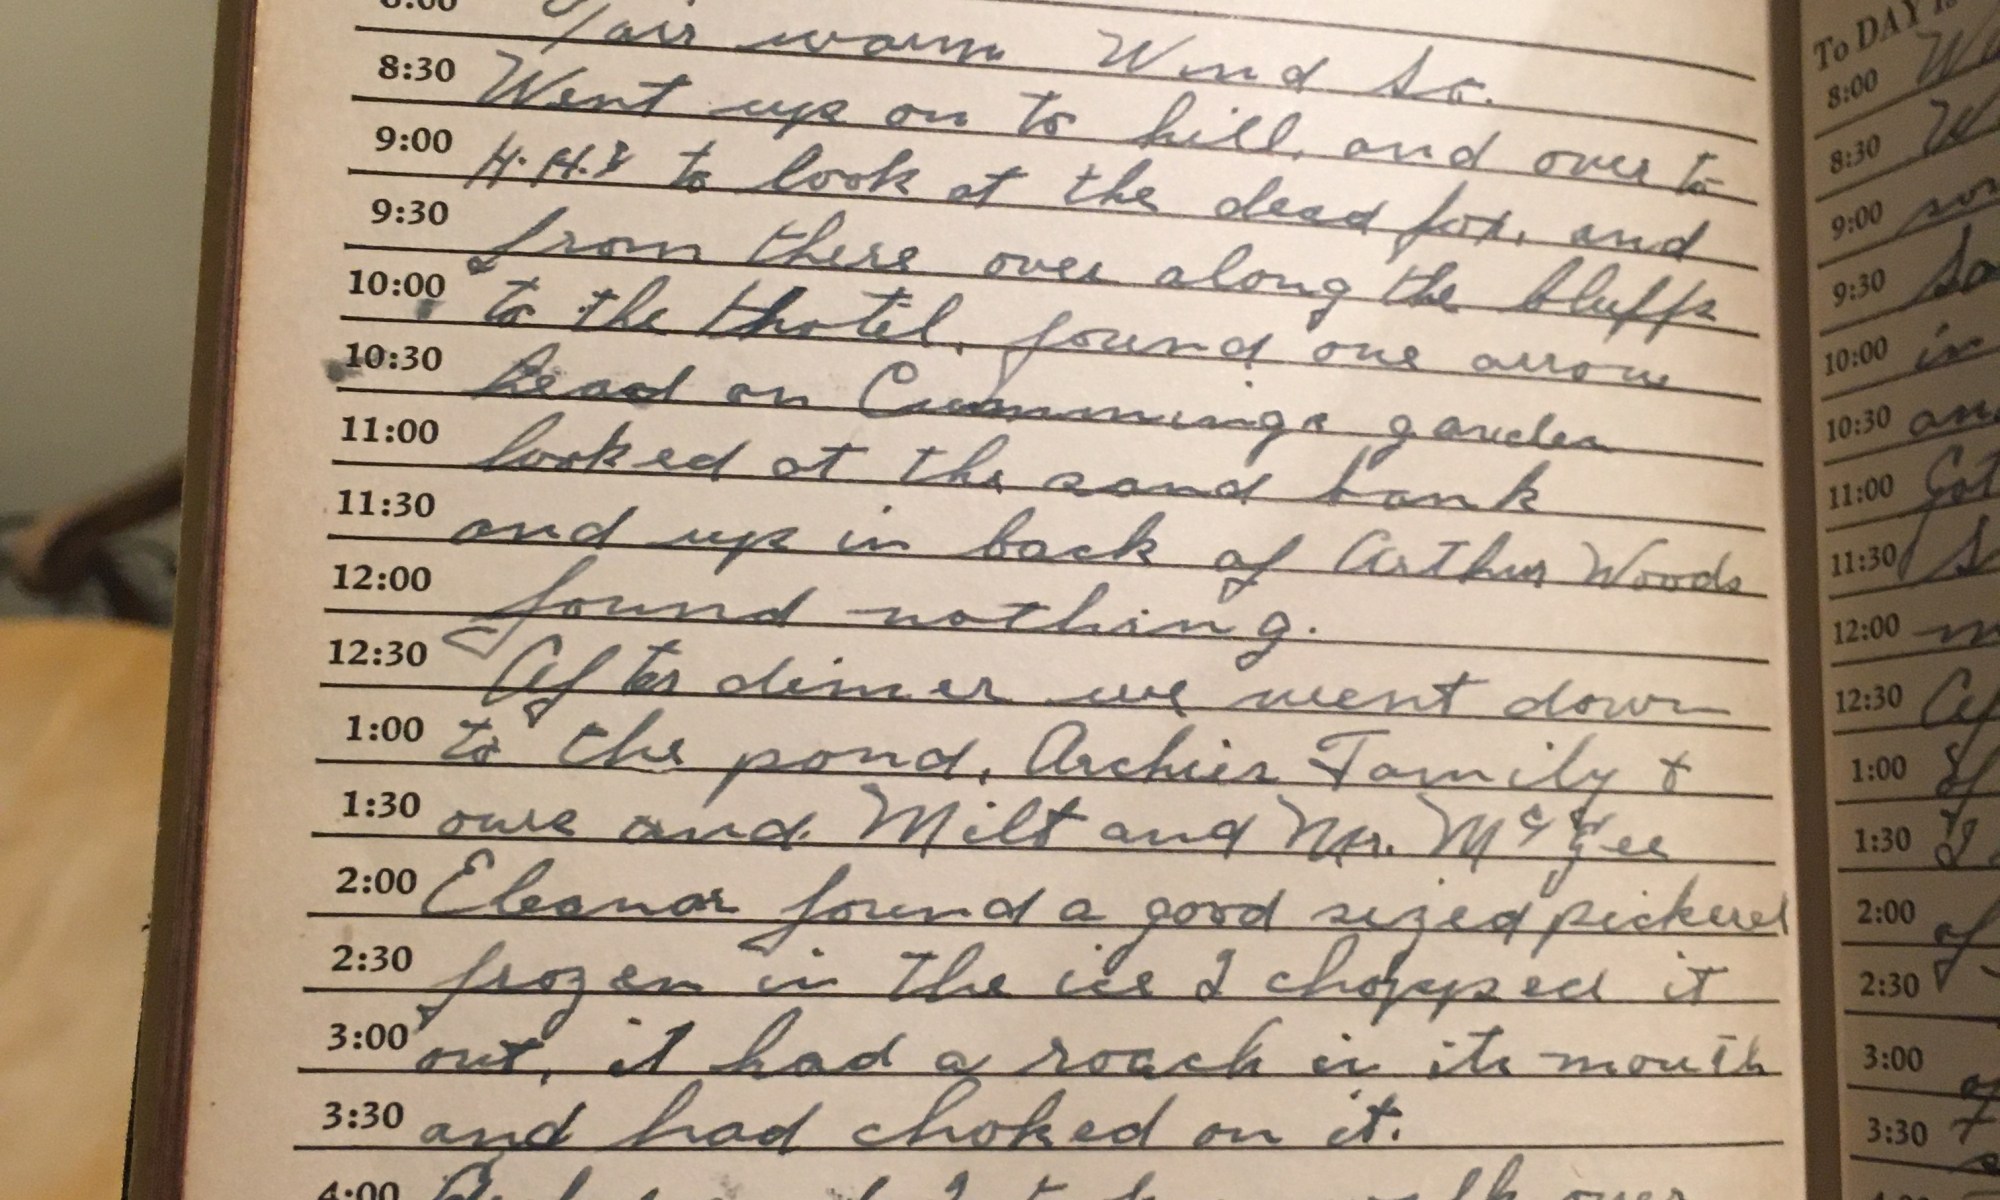 8:00
Fair warm Wind So.
8:30 Went up on to hill, and over to
9:00 to look at the dead fox, and
9:30 from there over along the bluffs
10:00 to the hotel, found one arrow
10:30 head on Cummings garden
11:00 looked at the sand bank
11:30 and up in back of Arthur Woods
12:00 found nothing.
12:30 After dinner we went down
1:00 to the pond, Archies Family &
1:30 ours and Milt and Mr. McGee
2:00 Eleanor found a good sized pickerel
2:30 frozen in the ice I chopped it
3:00 out, it had a roach in its mouth
3:30 and had choked on it.
4:00 I walk over
To DAY is
8:00
8:30
9:00
9:30
10:00 in
10:30
11:00
11:30
12:00
12:30
1:00
1:30
2:00
2:30
3:00
3:30